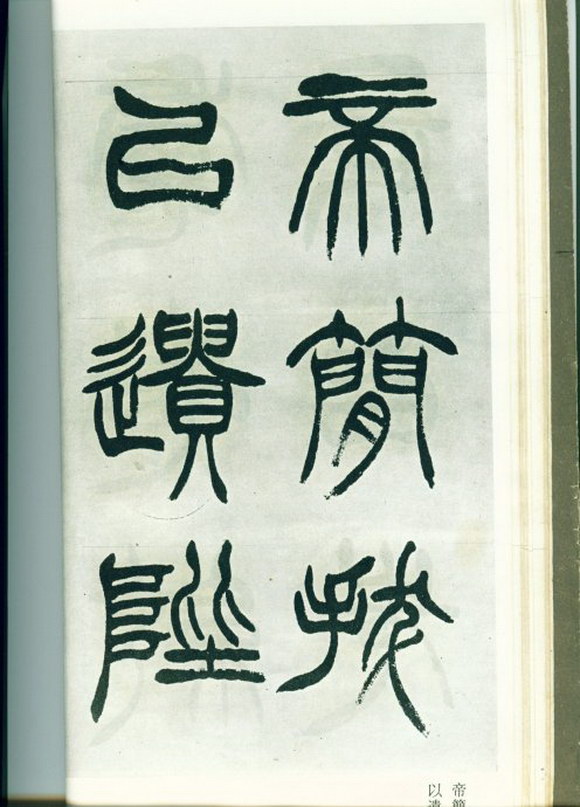 帝簡拔
以遺陛
帝簡
以遺